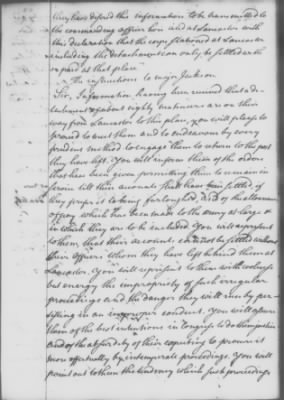 they have desired the information to be transmitted to
the commanding officer here and at Lancaster with
this declaration that the corps stationed at Lancaster
including the detachment can only be settled with
or paid at that place.
The instructions to major Jackson.
Sir, Information having been received that a de-
tachment of about eighty mutineers are on their
way from Lancaster to this place, you will please to
proceed to meet them and to endeavour by every
prudent method to engage them to return to the post
they have left. You will inform them of the orders
that have been given permitting them to remain in
service till their accounts shall have been settled, if
they prefer it to being furloughed, and of the allowance
of pay which has been made to the army at large &
in which they are to be included. You will represent
to them, that their accounts cannot be settled without
their officers whom they have left behind them at
Lancaster. You will represent to them with coolness
but energy the impropriety of such irregular
proceedings and the danger they will run by per-
sisting in an improper conduct. You will assure
them of the best intentions in Congress to do them justice
and of the absurdity of their expecting to procure it
more effectually by intemperate proceedings. You will
point out to them the tendency which such proceedings